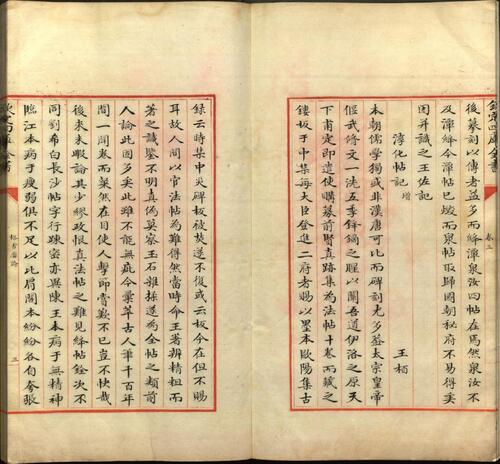 欽定四庫全書
卷三
後摹刻以傳者益多而絳然潭泉汝四帖在然泉汝不
及潭絳今潭帖已燬而泉帖取歸國朝秘府不易得矣
因并識之王佐記
淳化帖記 增
王栢
本朝儒學獨盛非漢唐可比而碑刻尤多蓋太宗皇帝
偃武修文一洗五季鋒鏑之腥以開吾道伊洛之原天
下甫定即遣使購摹前賢真跡集為法帖十卷而藏之
鏤板于中集每大臣登進二府者賜以墨本歐陽集古
錄云時集中災碑板被焚遂不復或云板今在但不賜
耳故人間以官法帖為難得然當時命王著辨精粗而
著之識鑒不明真偽莫察玉石雜揉遂為全帖之纇前
人論此固多矣此雖不能無疵今彙萃古人筆千百年
間一開卷而粲然在目使人擊節賞歎不已豈不快哉
後來未暇論其少繆政恨真法帖之難見絳帖銓次不
同劉希白長沙帖字行疎密亦異陳王本病于無精神
臨江本病于瘦弱俱不足以比肩閣本紛紛各自夸張
欽定四庫全書
格古要論
三